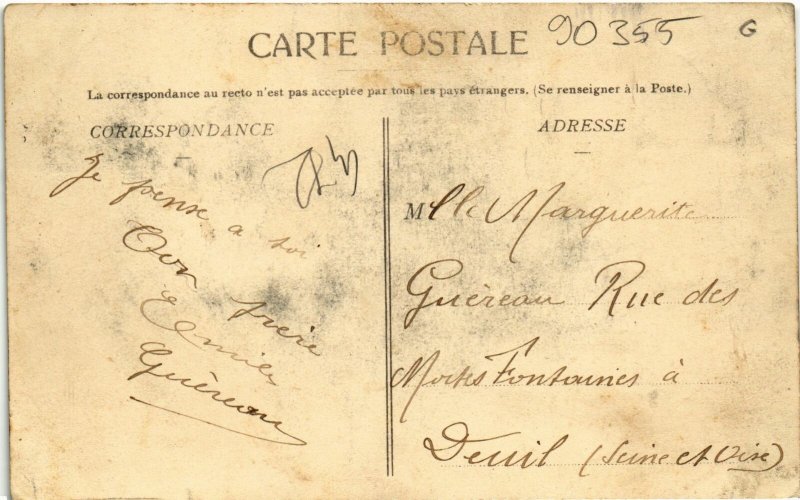 CARTE POSTALE 90355 G
La correspondance au recto n'est pas acceptée par tous les pays étrangers. (Se renseigner à la Poste.)
CORRESPONDANCE
Je pense a toi
Ton frère
Emile
Guéreau
ADRESSE
Mlle Marguerite
Guéreau Rue des
Mortes Fontaines à
Deuil (Seine et Oise)